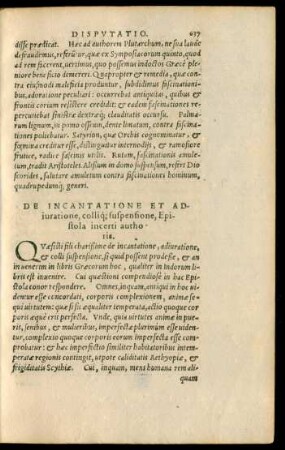 DISPVTATIO. 637
disse prædicat. Hæc ad authorem Plutarchum, ne sua laude
defraudimus, referũtur, quæ ex Symposiacorum quinto, quod
ad rem facerent, uertimus, quo possemus indoctos Græcè ple
niore beneficio demereri. Quapropter & remedia, quæ con
tra eiusmodi maleficia produntur, subdidimus fascinationi
bus, adoratione peculiari: occurrebat antiquitas, quibus &
frontis corium resistere credidit: & eadem fascinationes re
percutiebat sinistræ dextræq́; clauditatis occursu. Palma-
rum lignum, in primo ostium, dente limatum, contra fasci-
nationes pollicebatur. Satyrion, quæ Orbis cognominatur, &
fæmina creditur esse, distinguitur internodijs, & ramosiore
frutice, radice fascinis utilis. Rutam, fascinationis amule
tum, tradit Aristoteles. Alysson in domo suspensum, refert Dio
scorides, salutare amuletum contra fascinationes hominum,
quadrupedumq́; generi.
DE INCANTATIONE ET AD-
iuratione, colliq́; suspensione, Epi-
stola incerti autho
ris.
QVæsisti fili charissime de incantatione, adiuratione,
& colli suspensione, si quid possent prodesse, & an
inuenerim in libris Græcorum hoc, qualiter in Indorum li-
bris est inuenire. Cui quæstioni compendiosè in hac Epi
stola conor respondere. Omnes, inquam, antiqui in hoc ui-
dentur esse concordati, corporis complexionem, animæ se-
qui uirtutem: si quæ fuerit æqualiter temperata, actio quoque cor
poris æquè erit perfecta. Vnde, quia uirtutes animæ in pue-
ris, senibus, & mulieribus, imperfectæ plurimùm esse uiden-
tur, complexio quoque corporis eorum imperfecta esse com-
probatur: & hæc imperfectio similiter habitatoribus intem-
peratæ regionis contingit, utpote caliditatis Aethyopiæ, &
frigiditatis Scythiæ. Cùm, inquam, mens humana rem ali-
quam